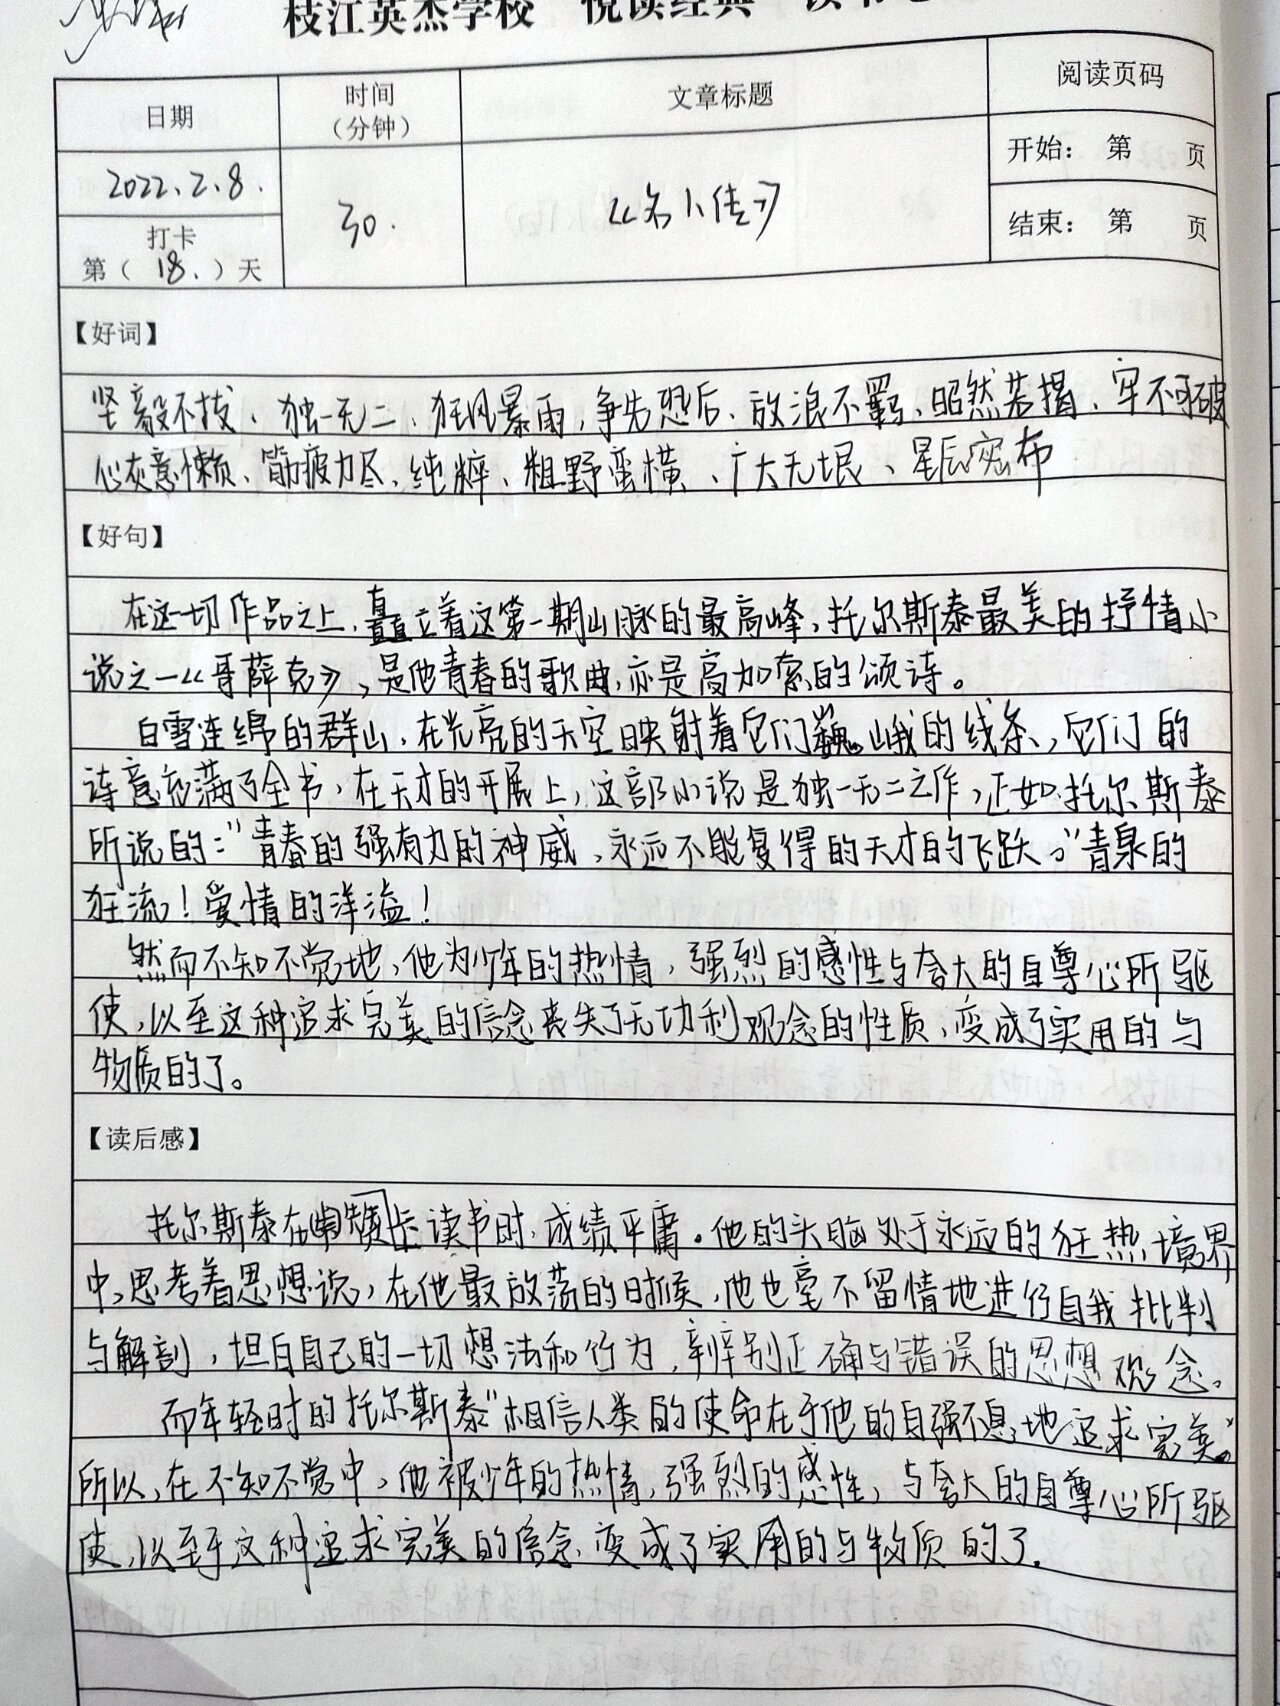 枝江英杰学校 悦读经典
日期
时间
（分钟）
文章标题
阅读页码
2022.2.8.
30.
《名人传》
开始： 第 页
打卡
第（18.）天
结束： 第 页
【好词】
坚毅不拔、独一无二、狂风暴雨，争先恐后、放浪不羁、昭然若揭、牢不可破
心灰意懒、筋疲力尽、纯粹、粗野蛮横、广大无垠、星辰密布
【好句】
在这一切作品之上，矗立着这第一期山脉的最高峰，托尔斯泰最美的抒情小
说之一《哥薛克》，是他青春的歌曲，亦是高加索的颂诗。
白雪连绵的群山，在光亮的天空映射着它们巍峨的线条，它们的
诗意充满了全书，在天才的开展上，这部小说是独一无二之作，正如托尔斯泰
所说的：“青春的强有力的神威，永远不能复得的天才的飞跃。”青泉的
狂流！爱情的洋溢！
然而不知不觉地，他为少年的热情，强烈的感性与夸大的自尊心所驱
使，以至这种追求完美的信念丧失了无功利观念的性质，变成了实用的与
物质的了。
【读后感】
托尔斯泰在喀赞读书时，成绩平庸。他的头脑处于永远的狂热境界
中，思考着思想说，在他最放荡的时候，他也毫不留情地进行自我批判
与解剖，坦白自己的一切想法和行为，辨别正确与错误的思想观念。
而年轻时的托尔斯泰“相信人类的使命在于他的自强不息地追求完美。”
所以，在不知不觉中，他被少年的热情，强烈的感性，与夸大的自尊心所驱
使，以至于这种追求完美的信念，变成了实用的与物质的了。